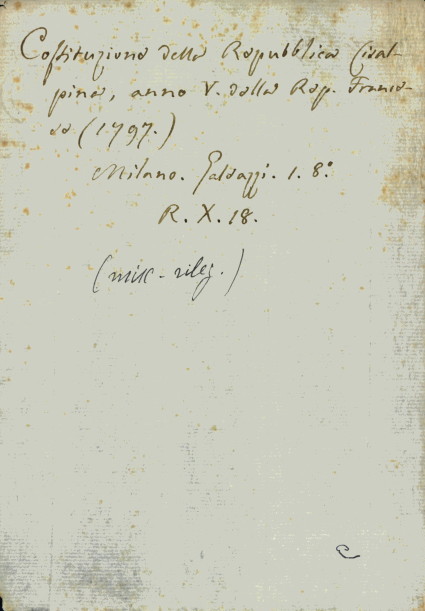 Costituzione della Repubblica Cisal-
pina, anno V. della Rep. France-
se (1797.)
Milano. Galeazzi. 1. 8.°
R. X. 18.
(misc. rileg.)